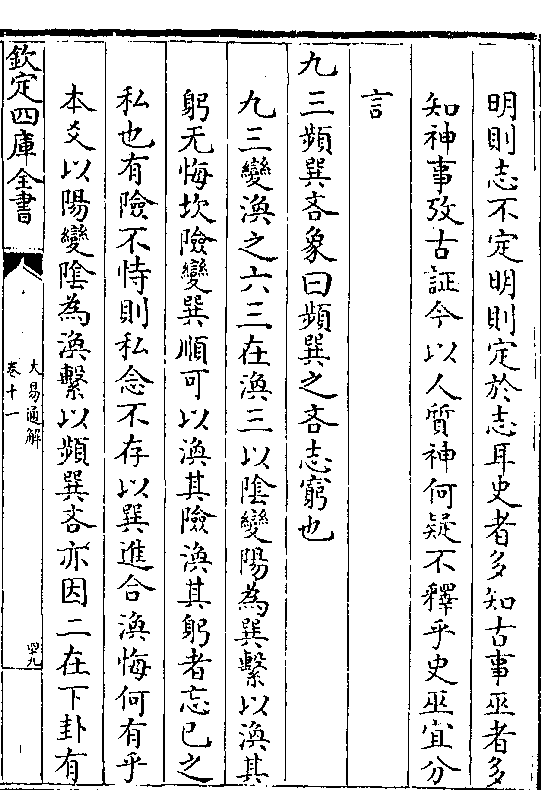 明則志不定明則定於志耳史者多知古事巫者多
知神事攷古証今以人質神何疑不釋乎史巫宜分
言
九三頻巽吝象曰頻巽之吝志窮也
九三變渙之六三在渙三以陰變陽為巽繫以渙其
躬无悔坎險變巽順可以渙其險渙其躬者忘已之
私也有險不恃則私念不存以巽進合渙悔何有乎
本爻以陽變陰為渙繫以頻巽吝亦因二在下卦有
欽定四庫全書
大易通解
卷十一
四九